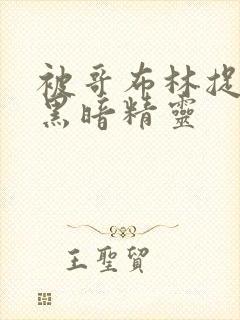 被哥布林捉
黑暗精靈
王聖貿